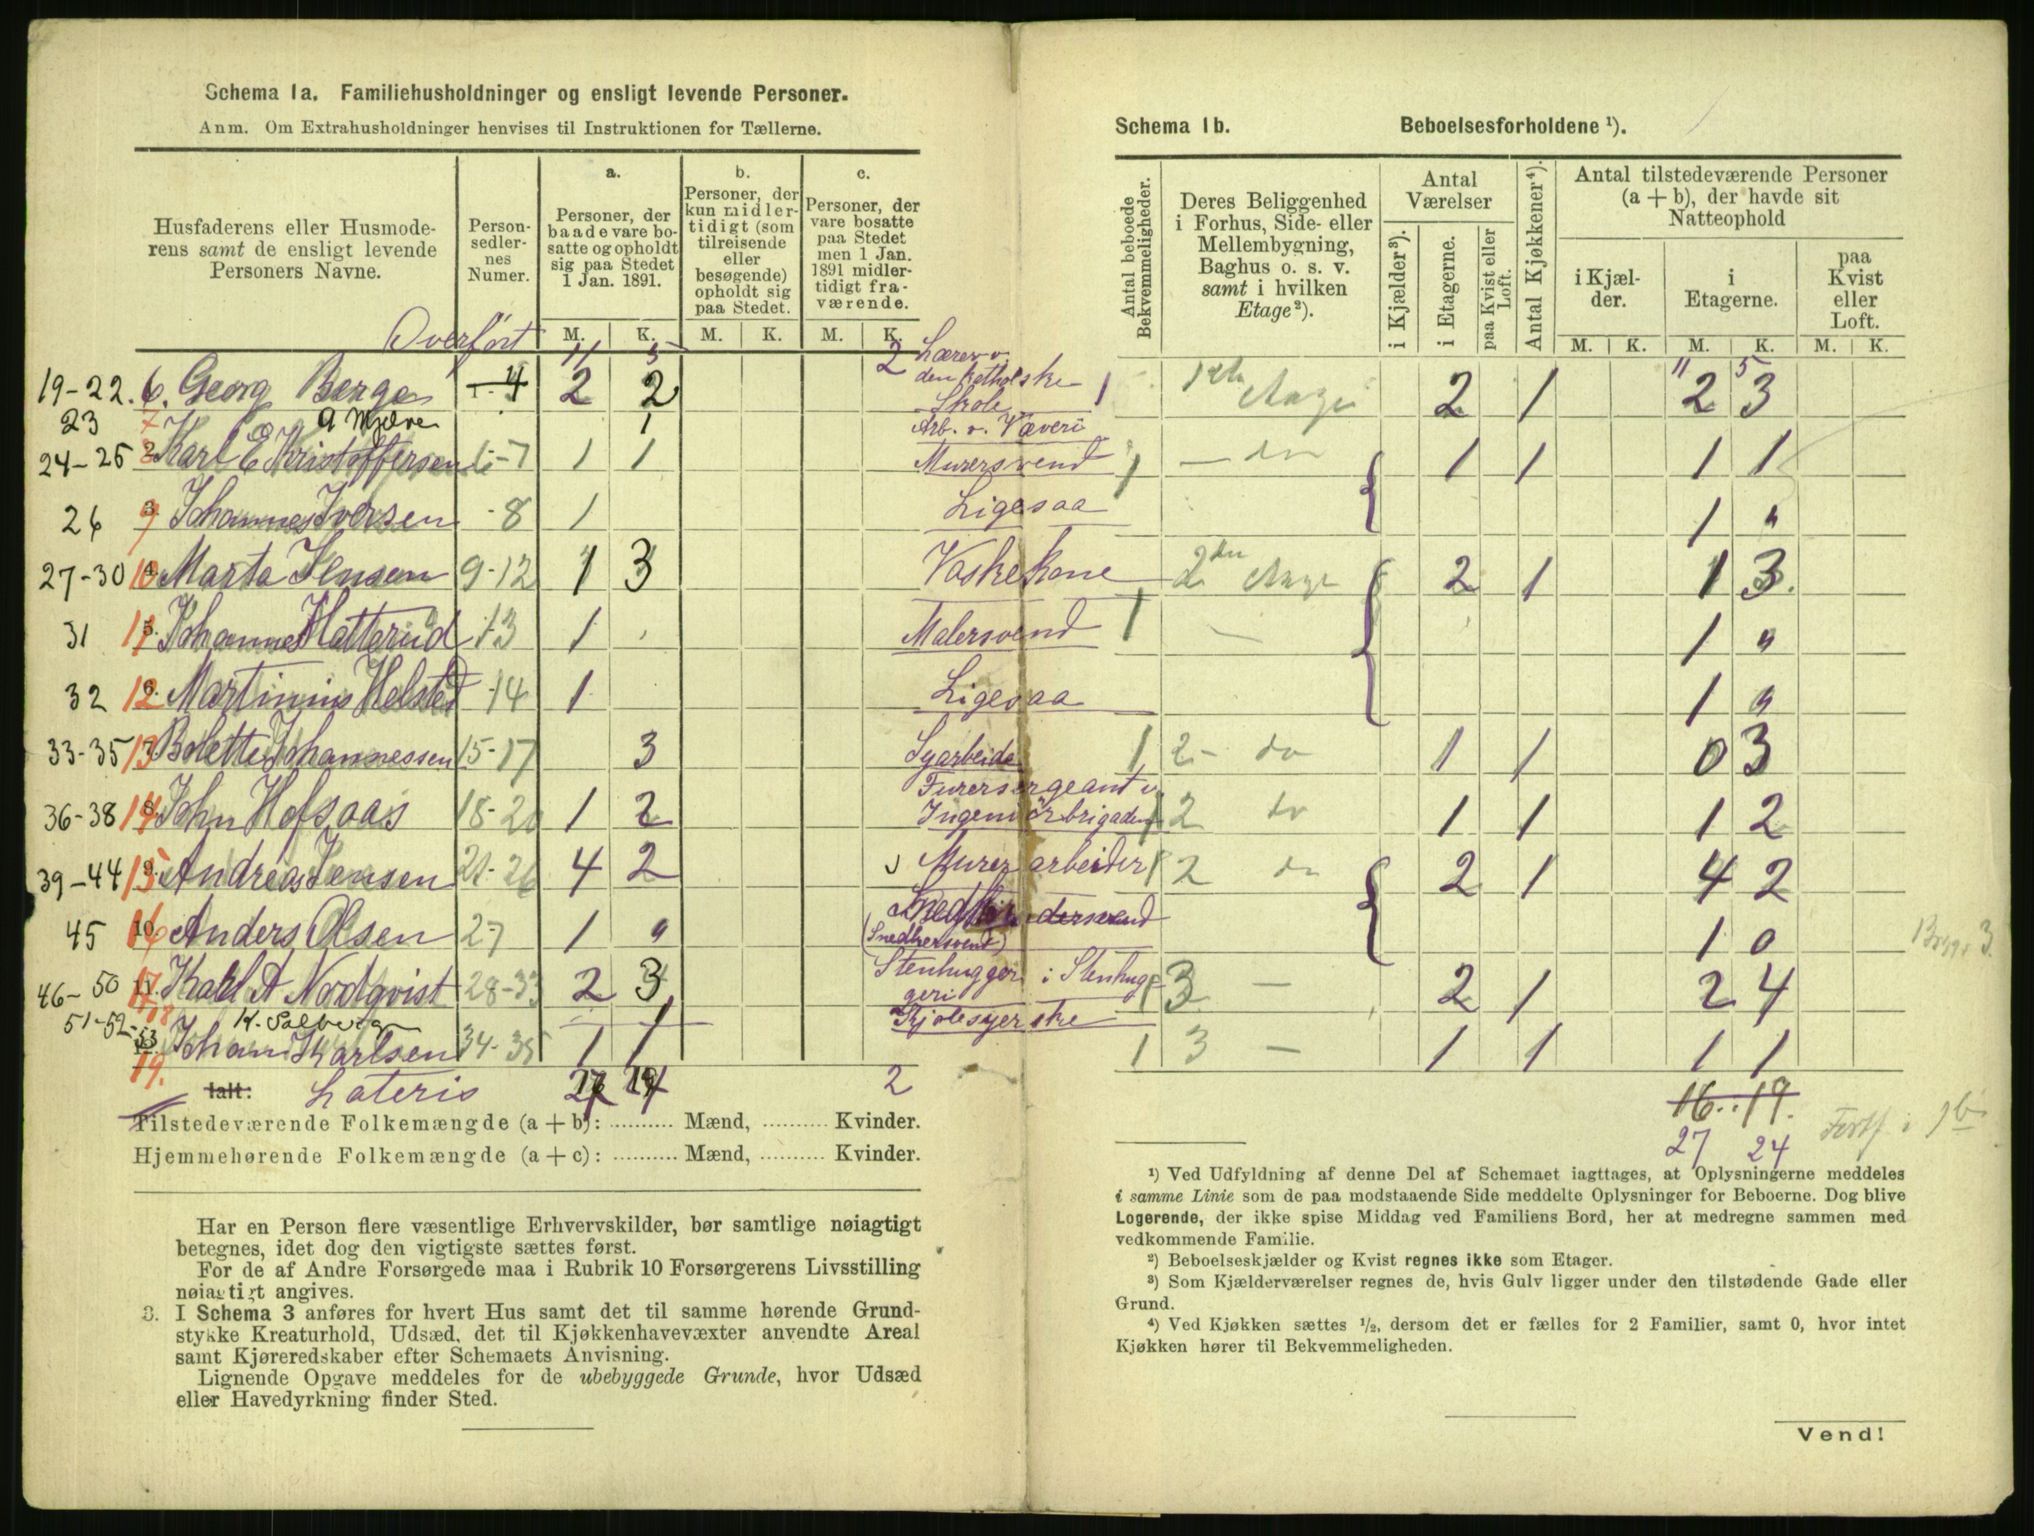 Schema 1a. Familiehusholdninger og ensligt levende Personer.
Anm. Om Extrahusholdninger henvises til Instruktionen for Tællerne.
Husfaderens eller Husmoderens samt de ensligt levende Personers Navne.
Personsedlernes Numer.
a. Personer, der baade vare bosatte og opholdt sig paa Stedet 1 Jan. 1891.
b. Personer, der kun midlertidigt (som tilreisende eller besøgende) opholdt sig paa Stedet.
c. Personer, der vare bosatte paa Stedet men 1 Jan. 1891 midlertidigt fraværende.
M. K. M. K. M. K.
Overført 11 5 2
19-22. 6. Georg Berge 1-4 2 2 Lærer v. den katholske Skole
23 7 A Mjelve 1 Arb. v. Væveri
24-25 8 2. Karl E Kristoffersen 6-7 1 1 Murersvend
26 9 3. Johannes Iversen -8 1 Ligesaa
27-30 10 4. Marta Jensen 9-12 1 3 Vaskekone
31 11 5. Johannes Hatterud 13 1 Malersvend
32 12 6. Martinius Helsted -14 1 Ligesaa
33-35 13 7. Bolette Johannessen 15-17 3 Syarbeide
36-38 14 8. John Hofsaas 18-20 1 2 Furersergeant v Ingeniørbrigaden
39-44 15 9. Andreas Jensen 21-26 4 2 Murerarbeider
45 16 10. Anders Olsen 27 1 " (Snedkersvend)
46-50 17 11. Karl A Nordqvist 28-33 2 3 Stenhugger i Stenhuggeri
51-52- 18 K. Solberg 1 Kjolesyerske
53 19. Johan Karlsen 34-35 1 1
Ialt: Lateris 27 24 2
Tilstedeværende Folkemængde (a + b): .......... Mænd, .......... Kvinder.
Hjemmehørende Folkemængde (a + c): .......... Mænd, .......... Kvinder.
Har en Person flere væsentlige Erhvervskilder, bør samtlige nøiagtigt
betegnes, idet dog den vigtigste sættes først.
For de af Andre Forsørgede maa i Rubrik 10 Forsørgerens Livsstilling
nøiagtigt angives.
3. I Schema 3 anføres for hvert Hus samt det til samme hørende Grund-
stykke Kreaturhold, Udsæd, det til Kjøkkenhavevæxter anvendte Areal
samt Kjøreredskaber efter Schemaets Anvisning.
Lignende Opgave meddeles for de ubebyggede Grunde, hvor Udsæd
eller Havedyrkning finder Sted.
Schema 1b. Beboelsesforholdene ¹).
Antal beboede Bekvemmeligheder.
Deres Beliggenhed i Forhus, Side- eller Mellembygning, Baghus o. s. v. samt i hvilken Etage²).
Antal Værelser
i Kjælder³).
i Etagerne.
paa Kvist eller Loft.
Antal Kjøkkener⁴).
Antal tilstedeværende Personer (a + b), der havde sit Natteophold
i Kjælder.
i Etagerne.
paa Kvist eller Loft.
M. K. M. K. M. K.
11 5
1 1ste Etage 2 1 2 3
1 — do 1 1 1 1
1 "
2den Etage 2 1 1 3.
1 — 1 "
1 "
1 2- do 1 1 0 3
1 2 do 1 1 1 2
1 2 do 2 1 4 2
1 0
1 3 — 2 1 2 4
1 3 — 1 1 1 1
16..19.
27 24
Forts i 1b
¹) Ved Udfyldning af denne Del af Schemaet iagttages, at Oplysningerne meddeles
i samme Linie som de paa modstaaende Side meddelte Oplysninger for Beboerne. Dog blive
Logerende, der ikke spise Middag ved Familiens Bord, her at medregne sammen med
vedkommende Familie.
²) Beboelseskjælder og Kvist regnes ikke som Etager.
³) Som Kjælderværelser regnes de, hvis Gulv ligger under den tilstødende Gade eller
Grund.
⁴) Ved Kjøkken sættes ½, dersom det er fælles for 2 Familier, samt 0, hvor intet
Kjøkken hører til Bekvemmeligheden.
Vend!